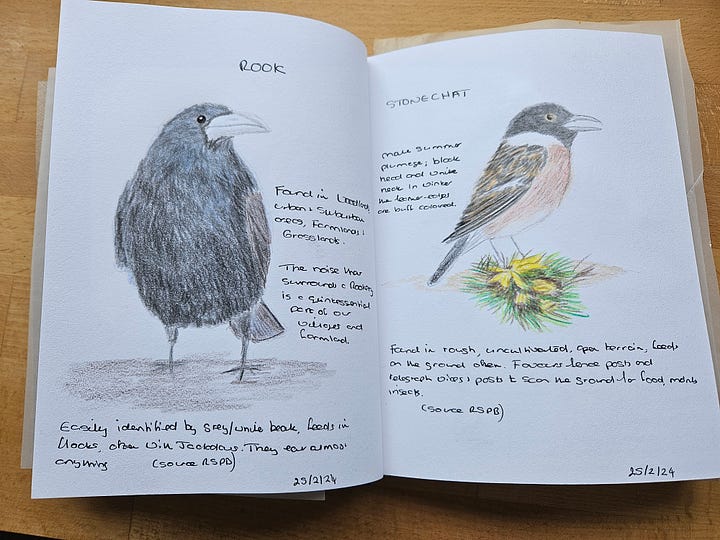 ROOK
Found in Woodland,
urban & Suburban
areas, Farmland &
Grassland.
The noise that
surrounds a Rookery
is a quintessential
part of our
villages and
farmland.
Easily identified by grey/white beak, feeds in
flocks, often with Jackdaws. They eat almost
anything (source RSPB)
25/2/24
STONECHAT
male summer
plumage; black
head and white
neck in winter
the feather-edges
are buff coloured.
Found in rough, uncultivated, open terrain, feeds
on the ground often. Favours fence posts and
telegraph wires & posts to scan the ground for food, mainly
insects.
(source RSPB)
25/2/24